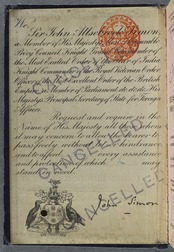 We
Sir John Allsebrook Simon,
a Member of His Majesty's Most Honourable
Privy Council, Knight Grand Commander of
the Most Exalted Order of the Star of India
Knight Commander of the Royal Victorian Order
Officer of the Most Excellent Order of the British
Empire, Member of Parliament, etc. etc. etc. His
Majesty's Principal Secretary of State for Foreign
Affairs.
Request and require in the
Name of His Majesty all those whom
it may concern to allow the bearer to
pass freely without let or hindrance
and to afford every assistance
and protection of which may
stand
CANCELLED
CANCELLED
John Simon